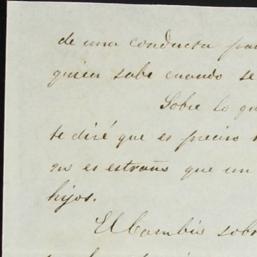 de una conducta
quien sabe cuando se
Sobre lo
te diré que es preciso
es estraño que un
hijos.
El Cambio sobr